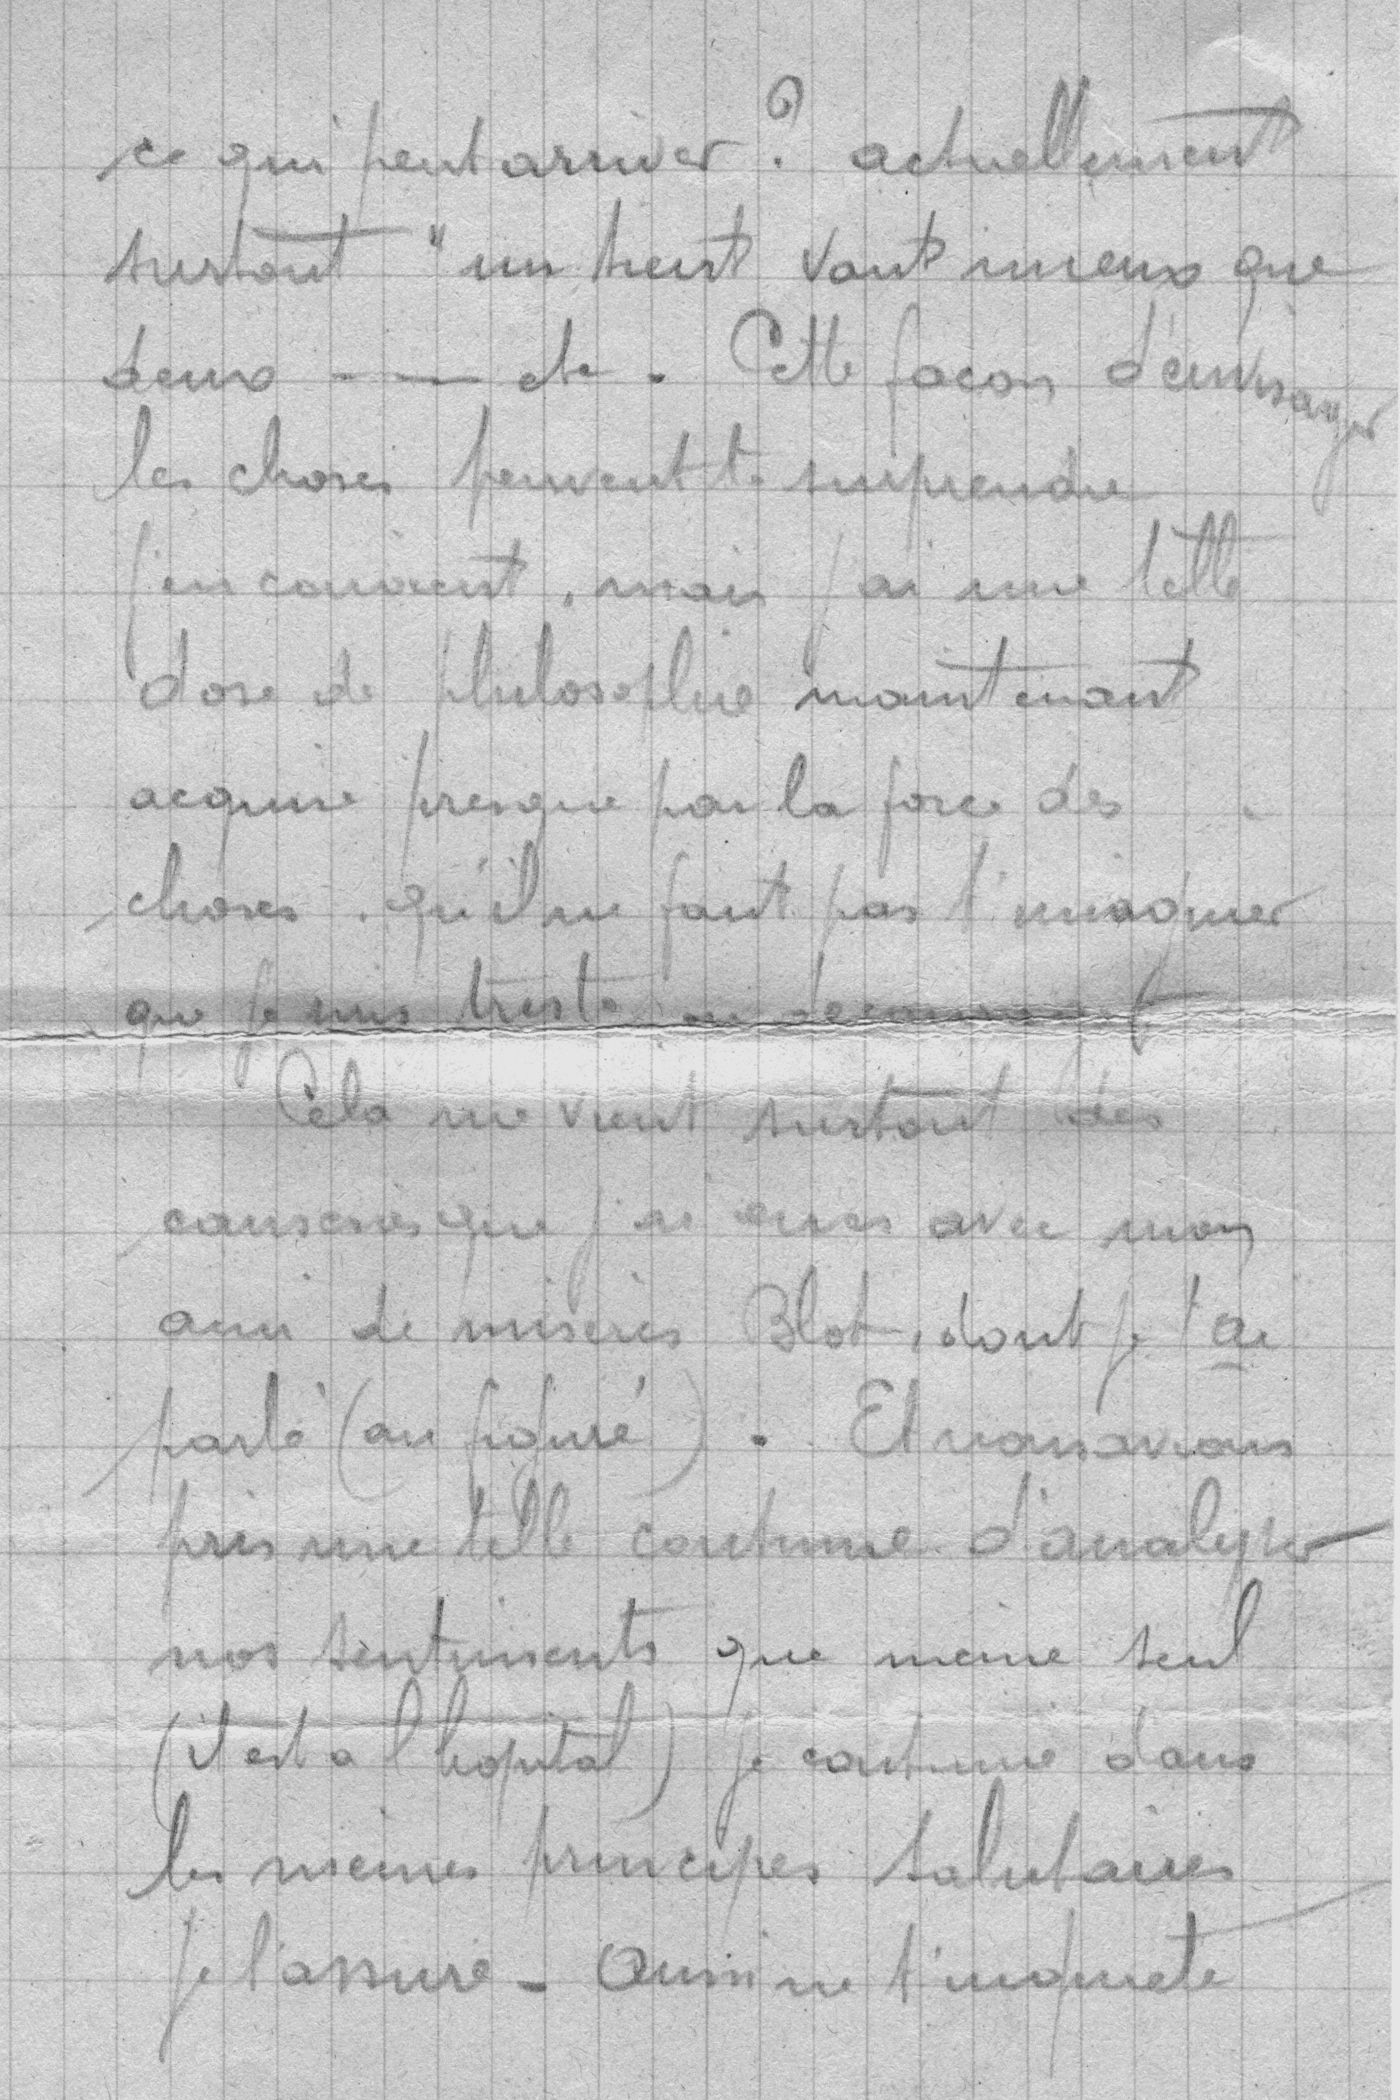 ce qui peut arriver ? actuellement
surtout " un tient vaut mieux que
deux - — etc . Cette façon d'envisager
les choses peuvent te surprendre
j'en convient , mais j'ai une telle
dose de philosophie maintenant
acquise presque par la force des
choses . qu'il ne faut pas t'imaginer
que je suis triste ou
Cela me vient surtout des
causeries que j'ai eues avec mon
ami de misères Blot , dont je t'ai
parlé (au figuré) . Et nous avions
pris une telle coutume d'analyser
nos sentiments que même seul
(il est a l'hopital) je continue dans
les mêmes principes salutaires
je t'assure - Aussi ne t'inquiete